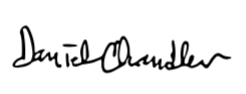 Daniel Chandler